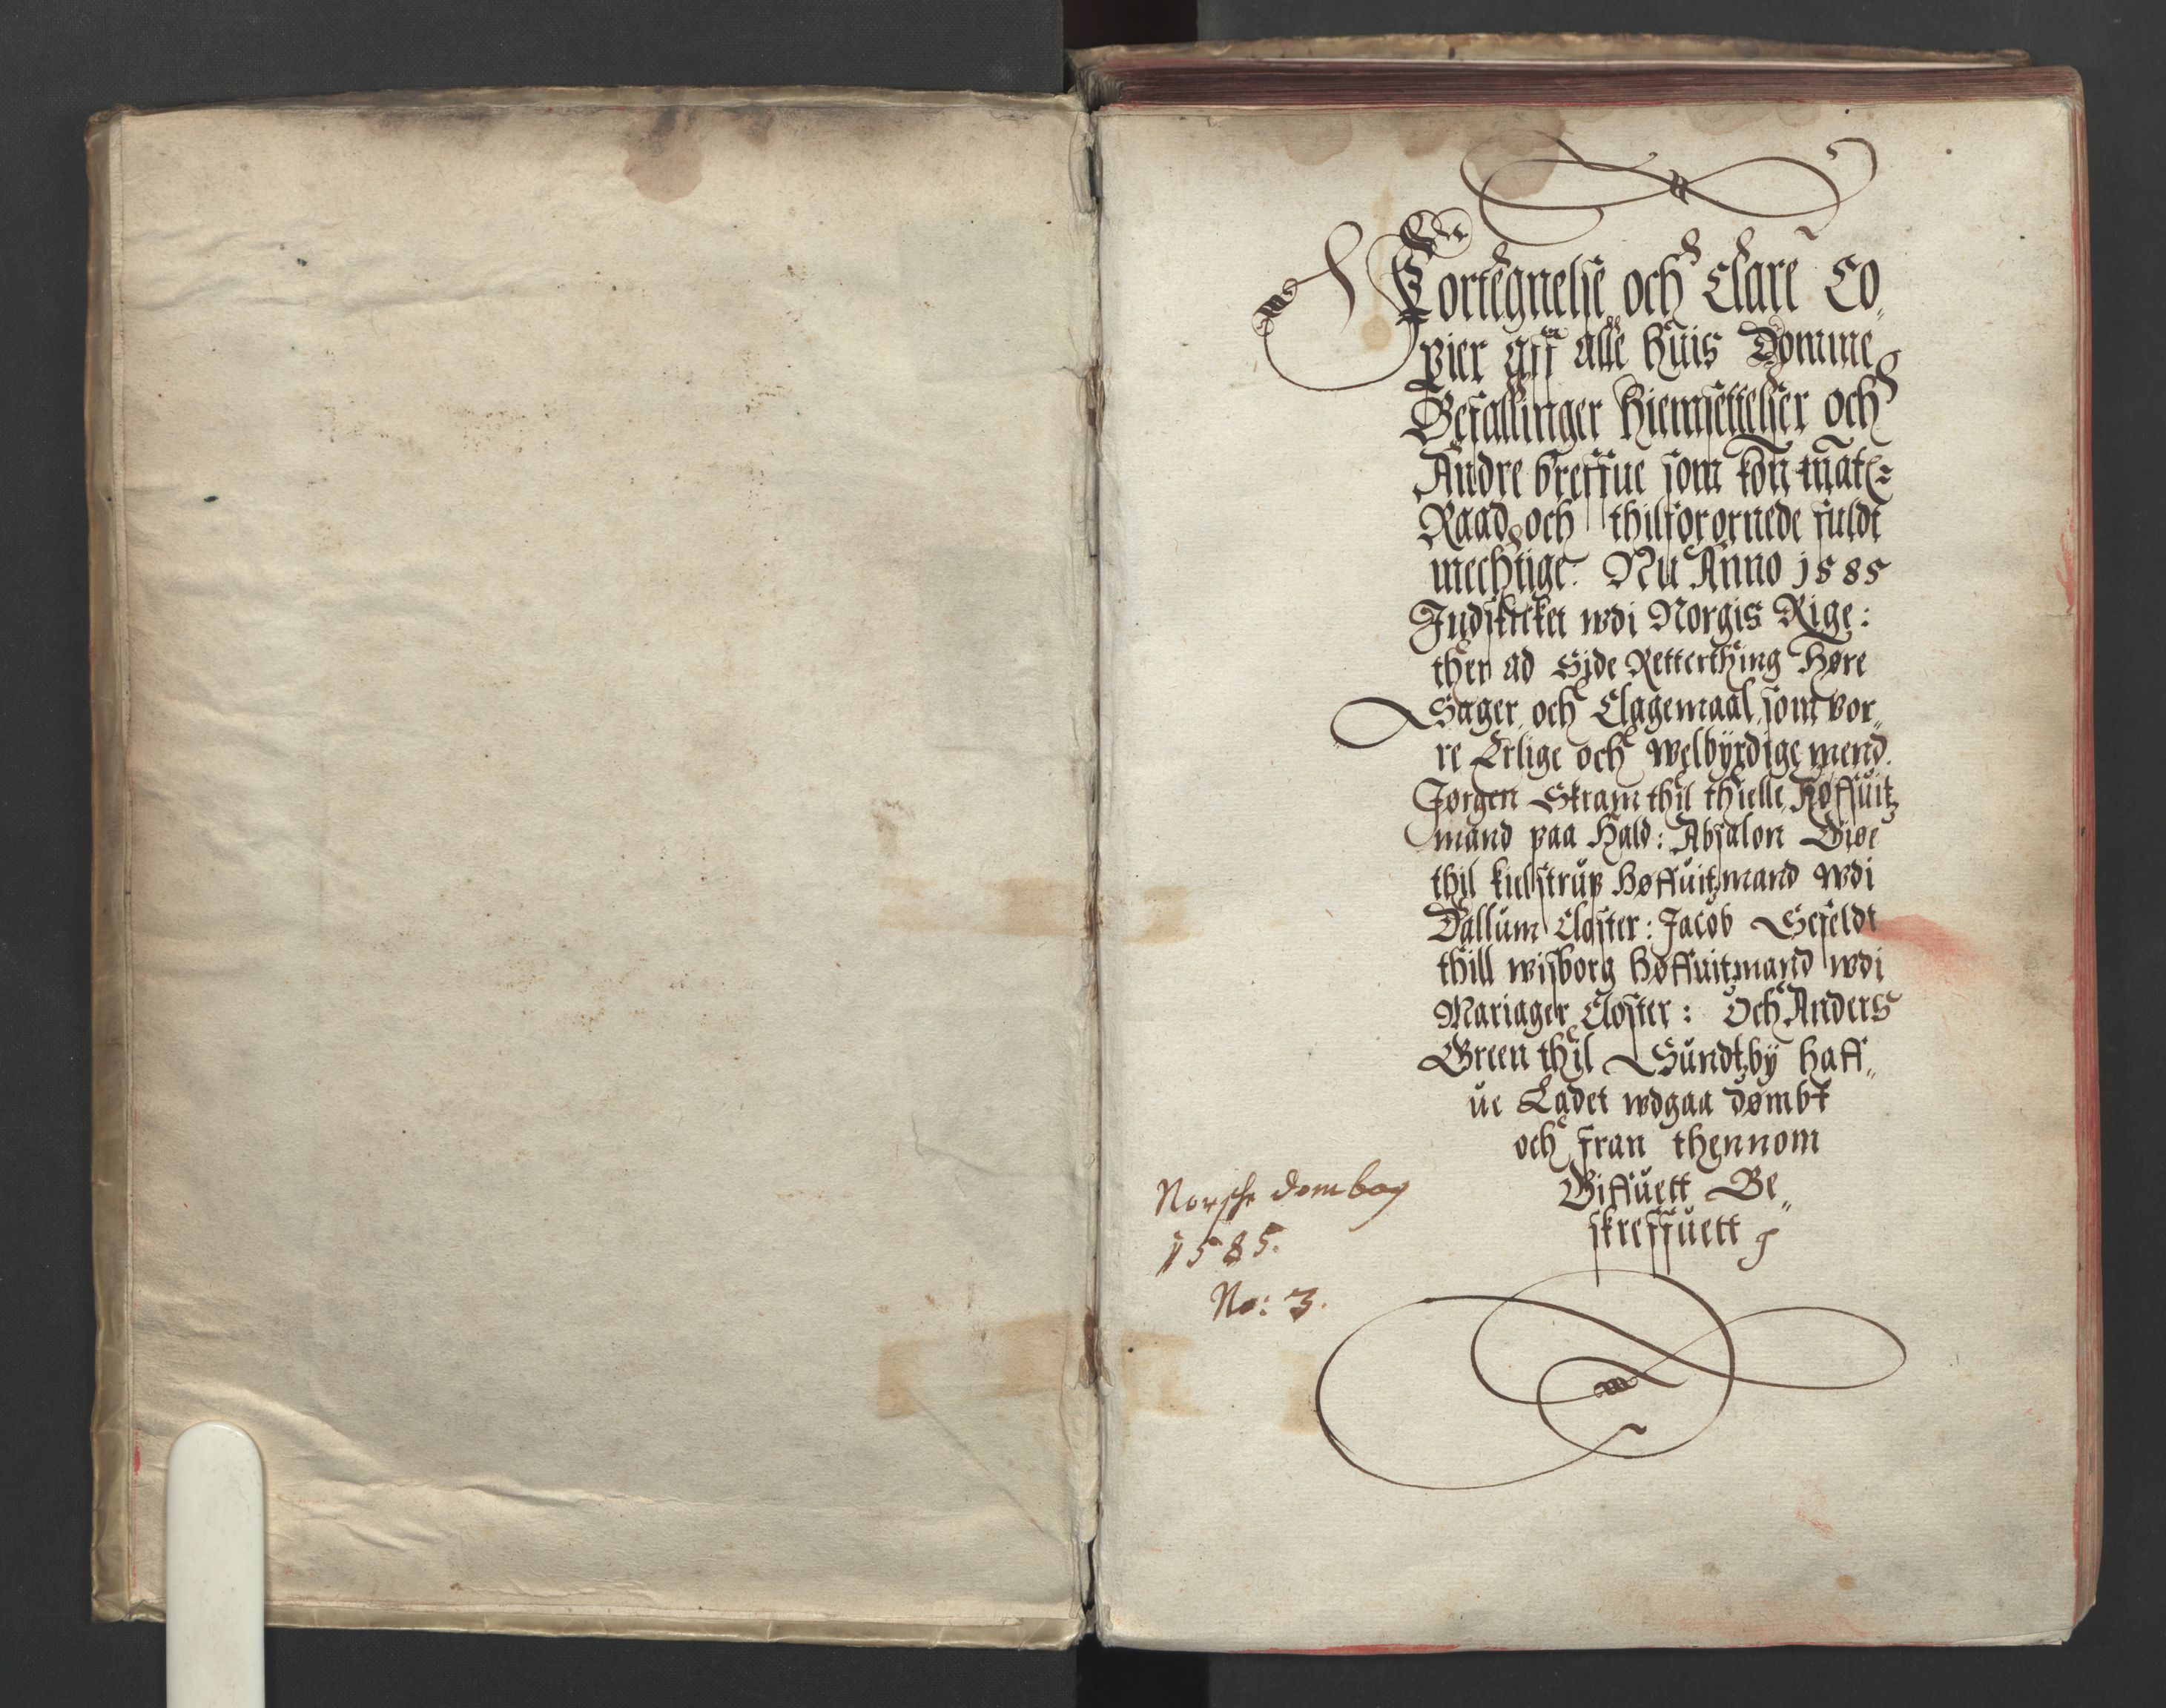 Fortegnelse och Clare Co,,
pier aff alle huis Domme
Befallinger hiemsettelser och
Andre breffue som kon: mat:
Raad och thilforornede fuldt
mechtige: Nu Anno 1585
Indskicket wdi Norgis Rige:
then ad Side Retterthing Høre
Sager och Clagemaal som vor,,
re Erlige och welbÿrdige mend.
Jørgen Skram thil thielle Høffuitz
mand paa Hald: Absalon Giøe
thil kielstrup Høffuitzmand wdi
Dallum Closter: Jacob Sefeldt
thill wisborg høffuitmand wdi
Mariager Closter: Och Anders
Green thil Sundtzbÿ haff,,
ue Ladet wdgaa dømbt
och fran thennom
Giffuett Be,,
skreffuett
Norsche dombog
1585.
No: 3.